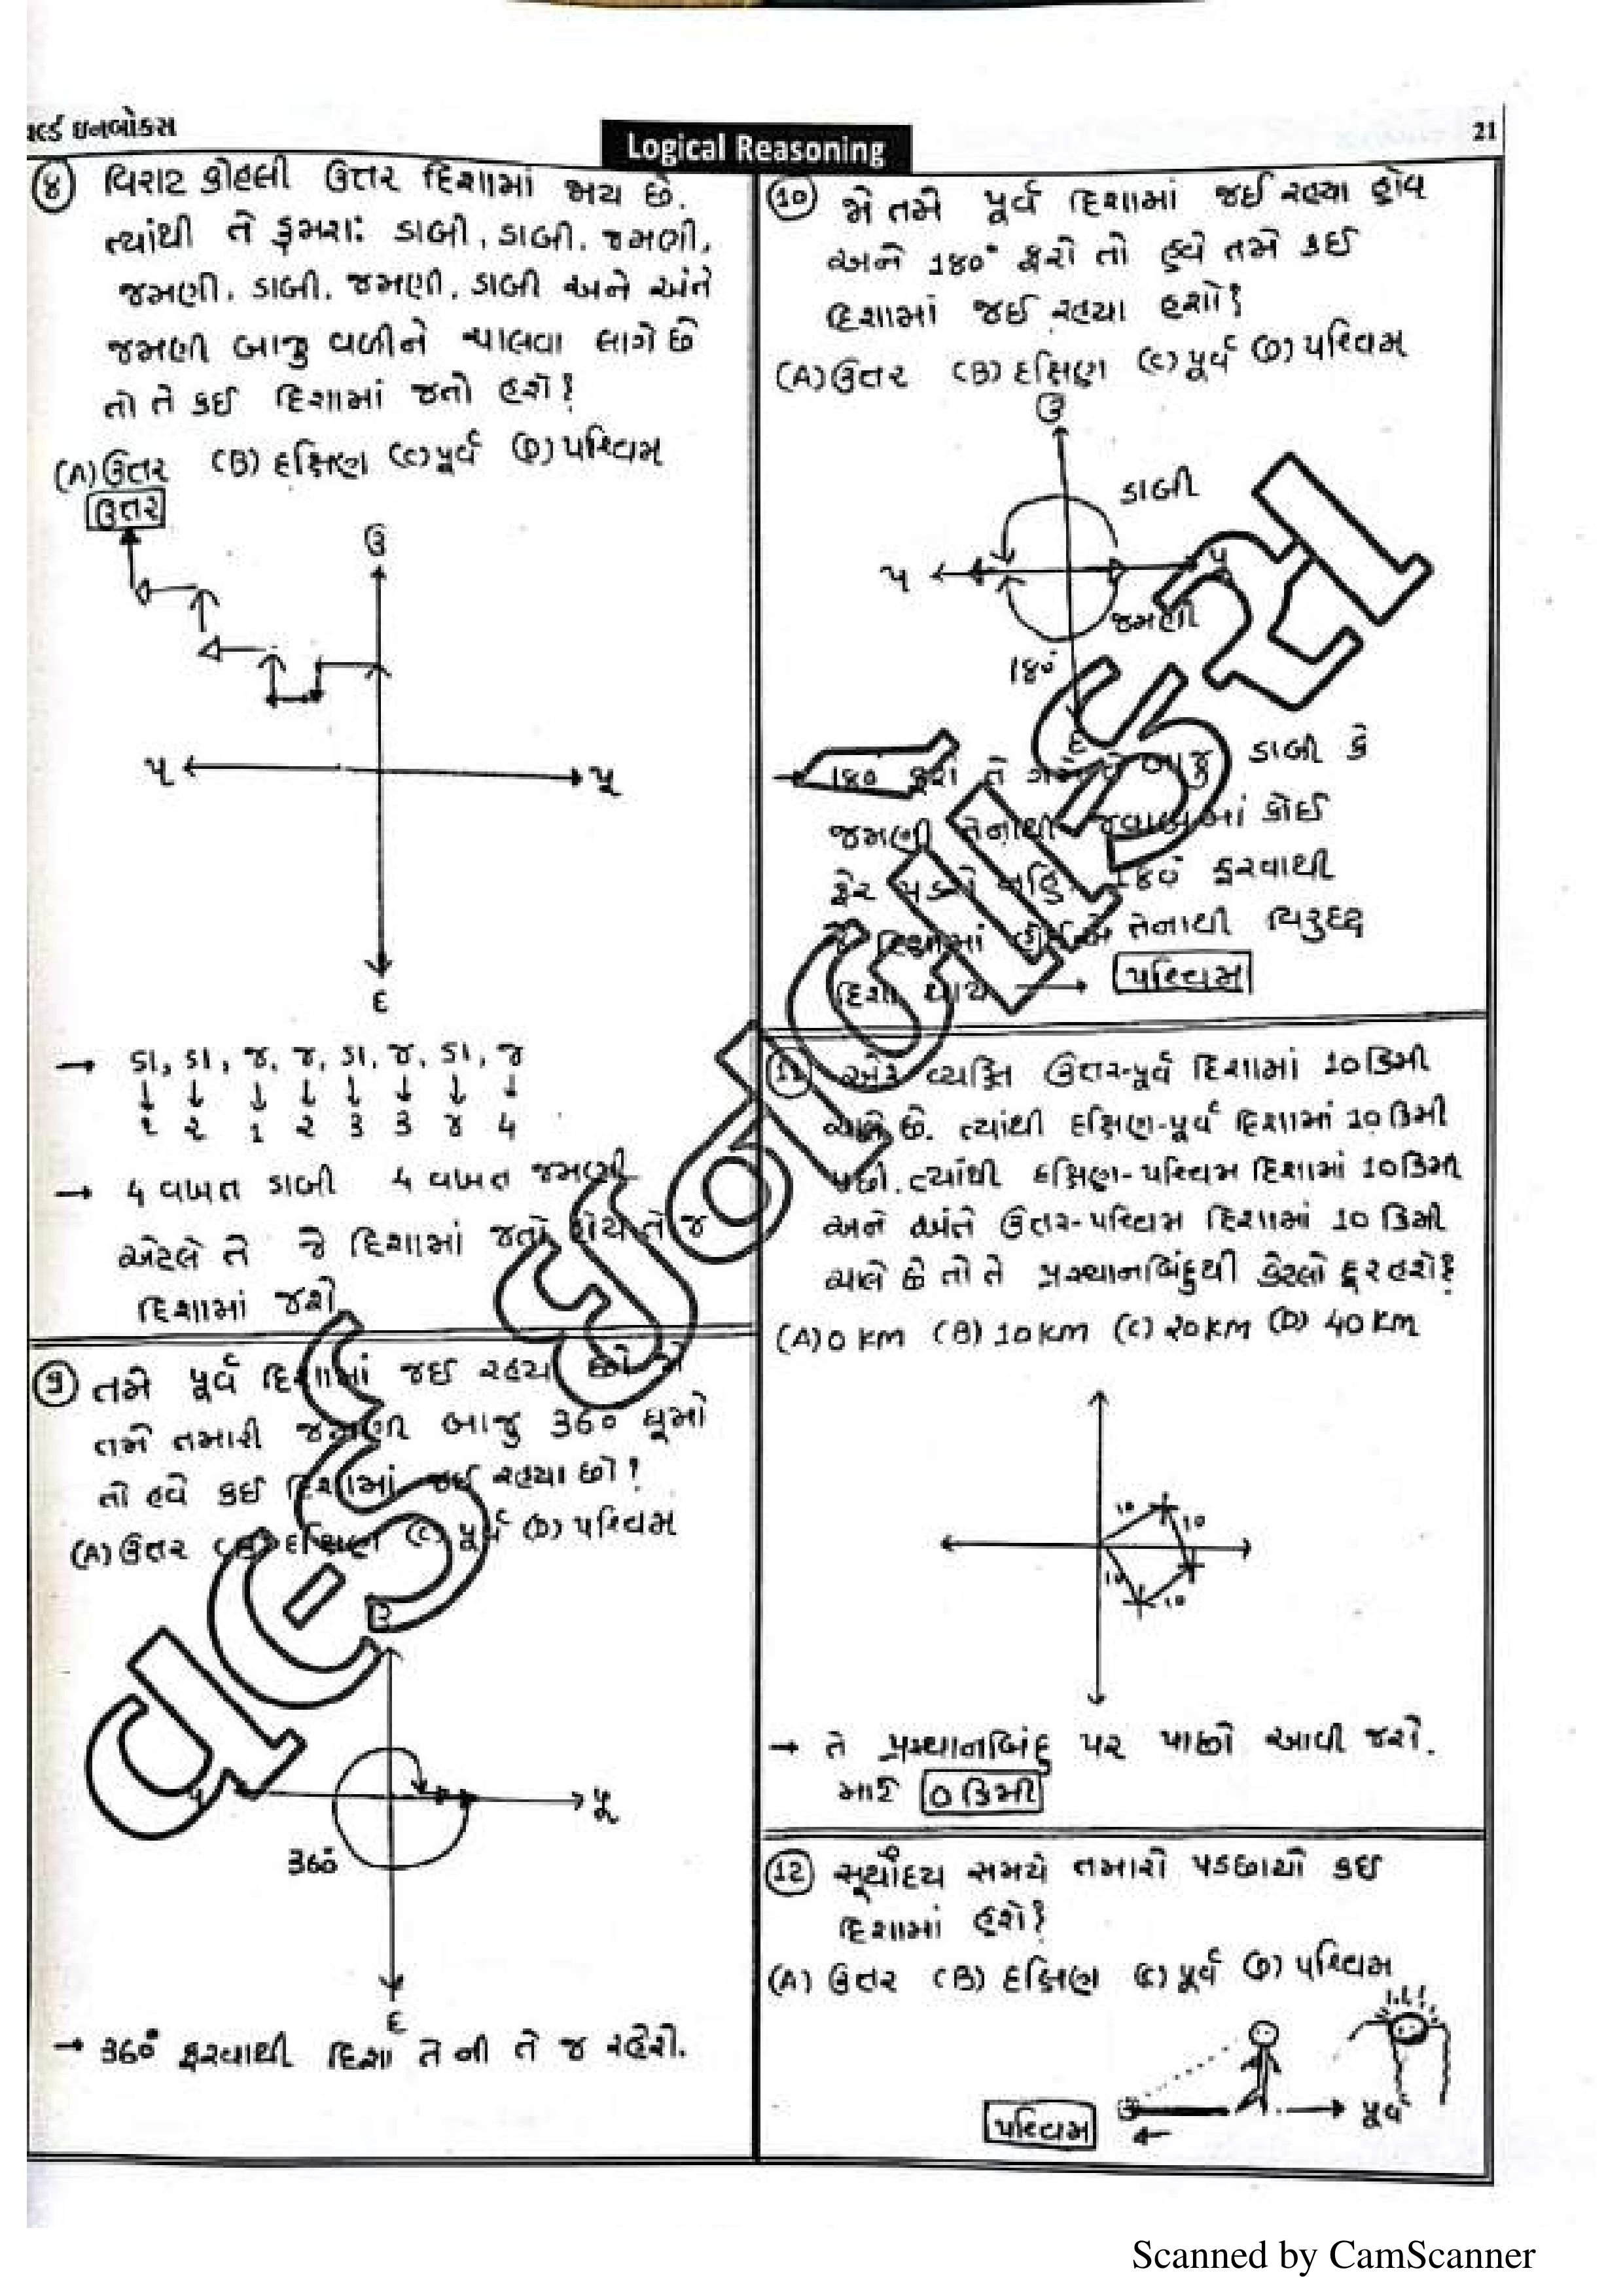 વર્લ્ડ ઇનબોક્સ
Logical Reasoning
21
(૪) વિરાટ કોહલી ઉત્તર દિશામાં જાય છે.
ત્યાંથી તે ક્રમશઃ ડાબી, ડાબી, જમણી,
જમણી, ડાબી, જમણી, ડાબી અને અંતે
જમણી બાજુ વળીને ચાલવા લાગે છે
તો તે કઈ દિશામાં જતો હશે?
(A) ઉત્તર (B) દક્ષિણ (C) પૂર્વ (D) પશ્ચિમ
ઉત્તર
ઉ
પ
પૂ
દ
→ ડા, ડા, જ, જ, ડા, જ, ડા, જ
૧ ૨ 1 ૨ 3 3 ૪ 4
→ 4 વખત ડાબી 4 વખત જમણી
એટલે તે જે દિશામાં જતો હોય તે જ
દિશામાં જશે.
(9) તમે પૂર્વ દિશામાં જઈ રહ્યા છો જો
તમે તમારી જમણી બાજુ 360 ઘૂમો
તો હવે કઈ દિશામાં જઈ રહ્યા છો?
(A) ઉત્તર (B) દક્ષિણ (C) પૂર્વ (D) પશ્ચિમ
ઉ
પ
પૂ
360°
દ
→ 360° ફરવાથી દિશા તે ની તે જ રહેશે.
(10) જો તમે પૂર્વ દિશામાં જઈ રહ્યા હોવ
અને 1૪0° ફરો તો હવે તમે કઈ
દિશામાં જઈ રહ્યા હશો?
(A) ઉત્તર (B) દક્ષિણ (C) પૂર્વ (D) પશ્ચિમ
ઉ
ડાબી
પ
પૂ
જમણી
1૪0°
દ
→ 1૪0° ફરો તે ગમે તે બાજુ ડાબી કે
જમણી તેનાથી જવાબમાં કોઈ
ફેર પડશે નહિ. 1૪0° ફરવાથી
જે દિશામાં હોઈએ તેનાથી વિરુદ્ધ
દિશા થાય → પશ્ચિમ
(11) એક વ્યક્તિ ઉત્તર-પૂર્વ દિશામાં 10 કિમી
ચાલે છે. ત્યાંથી દક્ષિણ-પૂર્વ દિશામાં 10 કિમી
પછી. ત્યાંથી દક્ષિણ-પશ્ચિમ દિશામાં 10 કિમી
અને અંતે ઉત્તર-પશ્ચિમ દિશામાં 10 કિમી
ચાલે છે તો તે પ્રસ્થાનબિંદુથી કેટલો દૂર હશે?
(A) 0 KM (B) 10 KM (C) ૨0 KM (D) 40 KM
10
10
10
10
→ તે પ્રસ્થાનબિંદુ પર પાછો આવી જશે.
માટે 0 કિમી
(12) સૂર્યોદય સમયે તમારો પડછાયો કઈ
દિશામાં હશે?
(A) ઉત્તર (B) દક્ષિણ (C) પૂર્વ (D) પશ્ચિમ
પશ્ચિમ
પૂર્વ
Scanned by CamScanner